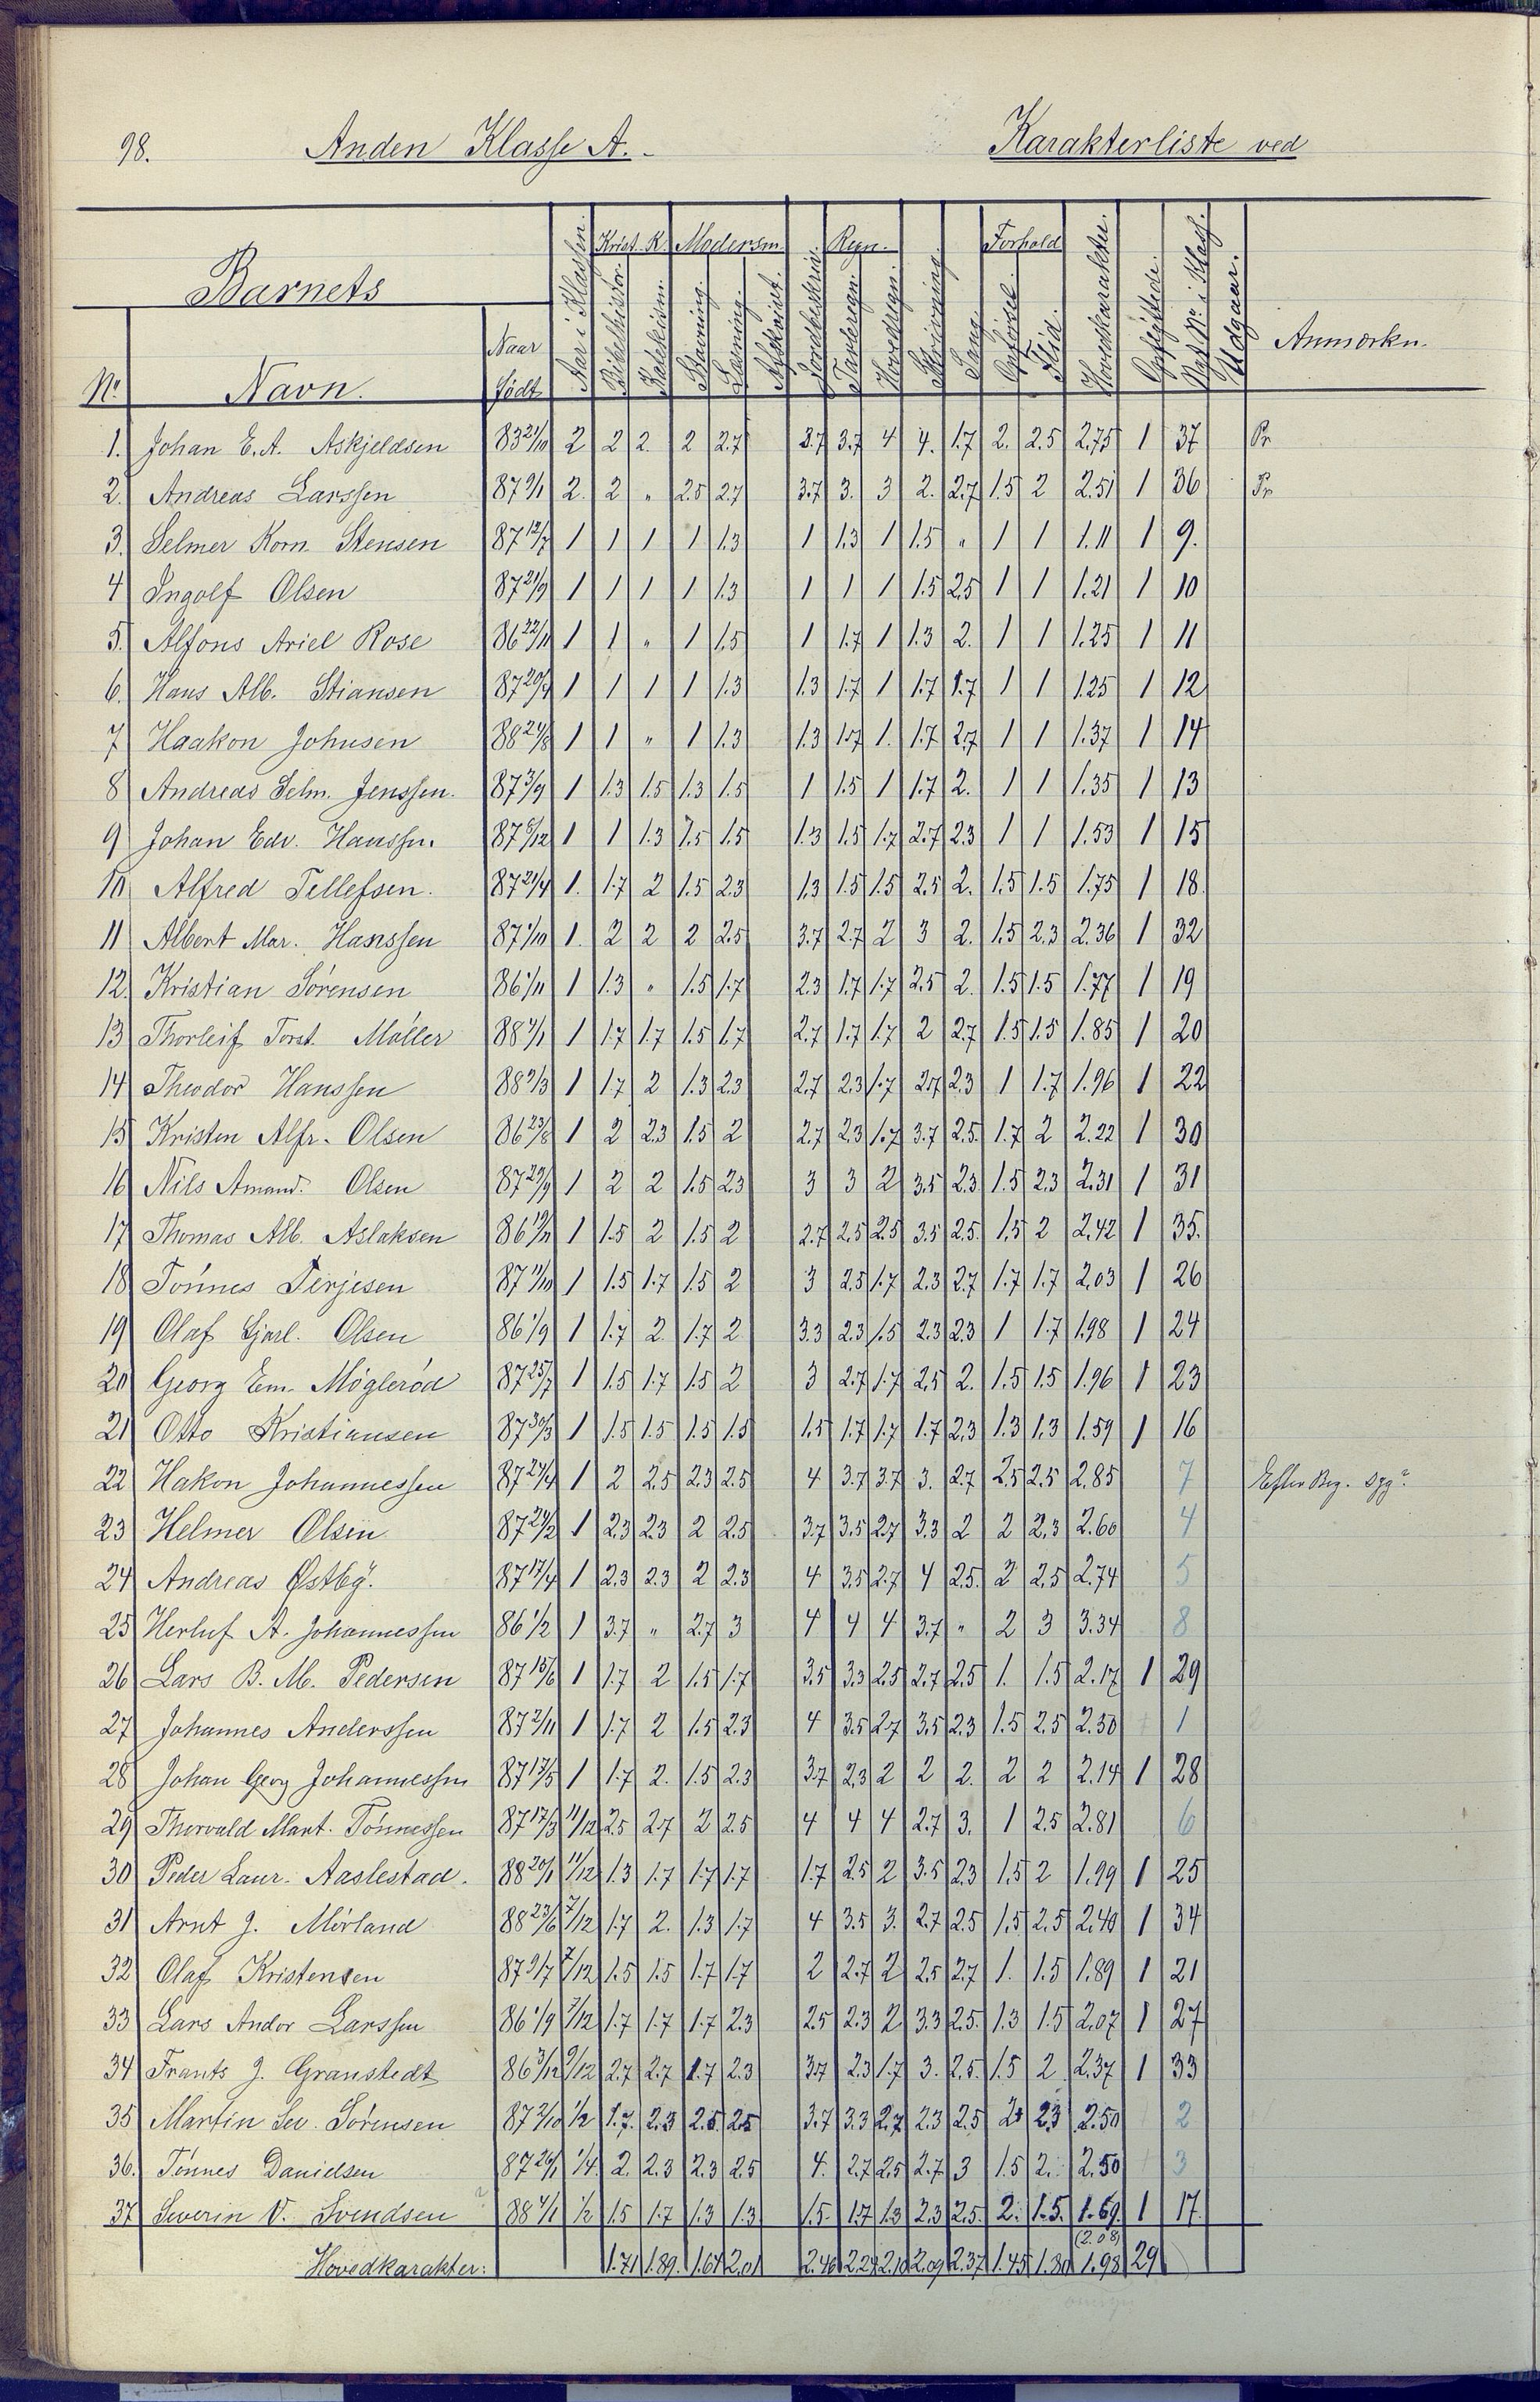 98. Anden Klasse A. Karakterliste ved
Barnets
No. Navn. Naar født Aar i Klassen Krist. K. Bibelhistor. Katekism. Modersm. Stavning. Læsning. Afskrivt. Regn. Tavleregn. Hovedregn. Skrivning. Sang. Forhold Opførsel. Flid. Hovedkarakter. Opflyttede. Udgaar. Anmærkn.
1. Johan E.A. Askjeldsen 83 21/10 2 2 2. 2 2.7 3.7 3.7 4 4. 1.7 2. 2.5 2.75 1 37 Pr
2. Andreas Larssen 87 9/1 2. 2 " 2.5 2.7 3.7 3. 3 2. 2.7 1.5 2 2.51 1 36 Pr
3. Selmer Korn. Stensen 87 12/7 1 1 1 1 1.3 1 1.3 1 1.5 " 1 1 1.11 1 9.
4 Ingolf Olsen 87 21/9 1 1 1 1 1.3 1 1 1 1.5 2.5 1 1 1.21 1 10
5. Alfons Ariel Rose 86 22/11 1 1 " 1 1.5 1 1.7 1 1.3 2. 1 1 1.25 1 11
6. Hans Alb. Stiansen 87 20/7 1 1 1 1 1.3 1.3 1.7 1 1.7 1.7 1 1 1.25 1 12
7 Haakon Johnsen 88 24/8 1 1 " 1 1.3 1.3 1.7 1. 1.7 2.7 1 1 1.37 1 14
8 Andreas Selm. Jenssen. 87 3/9 1 1.3 1.5 1.3 1.5 1 1.5 1 1.7 2. 1 1 1.35 1 13
9 Johan Edv. Hanssen. 87 6/12 1 1 1.3 1.5 1.5 1.3 1.5 1.7 2.7 2.3 1 1 1.53 1 15
10 Alfred Tellefsen. 87 21/4 1. 1.7 2 1.5 2.3 1.3 1.5 1.5 2.5 2. 1.5 1.5 1.75 1 18.
11 Albert Mar. Hanssen 87 1/10 1. 2 2 2 2.5 3.7 2.7 2 3 2. 1.5 2.3 2.36 1 32
12. Kristian Sørensen 86 1/11 1 1.3 " 1.5 1.7 2.3 1.7 1.7 2.5 2. 1.5 1.5 1.77 1 19
13 Thorleif Torst. Møller 88 4/1 1 1.7 1.7 1.5 1.7 2.7 1.7 1.7 2 2.7 1.5 1.5 1.85 1 20
14 Theodor Hanssen 88 9/3 1 1.7 2 1.3 2.3 2.7 2.3 1.7 2.7 2.3 1 1.7 1.96 1 22
15 Kristen Alfr. Olsen 86 23/8 1 2 2.3 1.5 2 2.7 2.3 1.7 3.7 2.5. 1.7 2 2.22 1 30
16 Nils Amand. Olsen 87 29/9 1 2 2 1.5 2.3 3 3 2 3.5 2.3 1.5 2.3 2.31 1 31
17 Thomas Alb. Aslaksen 86 19/11 1 1.5 2 1.5 2 2.7 2.5 2.5 3.5 2.5. 1.5 2 2.42 1 35.
18 Tønnes Terjesen 87 11/10 1 1.5 1.7 1.5 2 3 2.5 1.7 2.3 2.7 1.7 1.7 2.03 1 26
19 Olaf Olsen 86 1/9 1 1.7 2 1.7 2 3.3 2.3 1.5 2.3 2.3 1 1.7 1.98 1 24
20 Georg Em. Møglerød 87 25/7 1 1.5 1.7 1.5 2 3 2.7 1.7 2.5 2. 1.5 1.5 1.96 1 23
21 Otto Kristiansen 87 30/3 1 1.5 1.5 1.5 1.5 1.5 1.7 1.7 1.7 2.3 1.3 1.3 1.59 1 16
22 Hakon Johannessen 87 24/4 1 2 2.5 2.3 2.5 4 3.7 3.7 3. 2.7 2.5 2.5 2.85 7 Efter Beg.
23 Helmer Olsen 87 24/2 1 2.3 2.3 2 2.5 3.7 3.5 2.7 3.3 2 2 2.3 2.60 4
24 Andreas Østby. 87 17/4 1 2.3 2.3 2 2.3 4 3.5 2.7 4 2.5. 2 2.5 2.74 5
25 Herluf A. Johannessen 86 1/2 1 3.7 " 2.7 3 4 4 4 3.7 " 2 3 3.34 8
26 Lars B. M. Pedersen 87 15/6 1 1.7 2 1.5 1.7 3.5 3.3 2.5 2.7 2.5 1. 1.5 2.17 1 29
27 Johannes Anderssen 87 2/11 1 1.7 2 1.5 2.3 4 3.5 2.7 3.5 2.3 1.5 2.5 2.50 1
28 Johan Georg Johannessen 87 13/5 1 1.7 2. 1.5 2.3 3.7 2.3 2 2 2. 2 2 2.14 1 28
29 Thorvald Mart. Tønnessen 87 17/3 11/12 2.5 2.7 2 2.5 4 4 4 2.7 3. 1 2.5 2.81 6
30 Peder Laur. Aaslestad. 88 20/1 11/12 1.3 1.7 1.7 1.7 1.7 2.5 2 3.5 2.3 1.5 2 1.99 1 25
31 Arnt J. Mørland 88 23/6 7/12 1.7 2. 1.3 1.7 4 3.5 3. 2.7 2.5 1.5 2.5 2.40 1 34
32 Olaf Kristensen 87 9/7 7/12 1.5 1.5 1.7 1.7 2 2.7 2 2.5 2.7 1. 1.5 1.89 1 21
33 Lars Andor Larssen 86 1/9 7/12 1.7 1.7 1.7 2.3 2.5 2.3 2 3.3 2.5. 1.3 1.5 2.07 1 27
34 Frants J. Granstedt 86 3/12 9/12 2.7 2.7 1.7 2.3 3.7 2.3 1.7 3. 2.5. 1.5 2 2.37 1 33
35 Martin Sev. Sørensen 87 2/10 1/2 1.7. 2.3 2.5. 2.5 3.7 3.3 2.7 2.3 2.5 2 2.3 2.50 2
36. Tønnes Danielsen 87 26/1 1/4. 2. 2.3 2.3 2.5 4. 2.7 2.5 2.7 3 1.5 2. 2.50 3
37 Severin V. Svendsen 88 4/1 1/2 1.5 1.7 1.3 1.3 1.5. 1.7 1.3 2.3 2.5. 2. 1.5. 1.69. 1 17.
(2.08)
Hovedkarakter: 1.71 1.89. 1.67 2.01 2.46 2.27 2.10 2.09 2.37 1.45 1.80 1.98 29